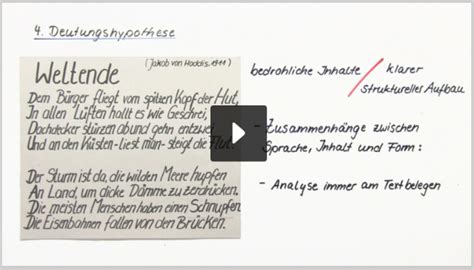 4. Deutungshypothese
Weltende
(Jakob van Hoddis, 1911)
Dem Bürger fliegt vom spitzen Kopf der Hut,
In allen Lüften hallt es wie Geschrei,
Dachdecker stürzen ab und gehn entzwei
Und an den Küsten-liest man-steigt die Flut.
Der Sturm ist da, die wilden Meere hupfen
An Land, um dicke Dämme zu zerdrücken.
Die meisten Menschen haben einen Schnupfen.
Die Eisenbahnen fallen von den Brücken.
bedrohliche Inhalte / klarer
struktureller Aufbau
- Zusammenhänge zwischen
Sprache, Inhalt und Form:
- Analyse immer am Text belegen